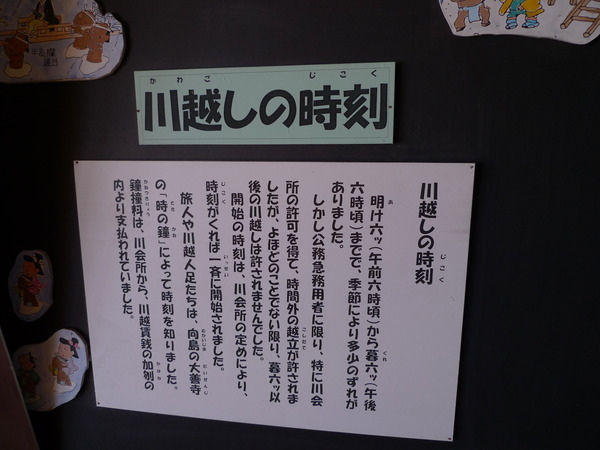 川越しの時刻
川越しの時刻
明け六ッ(午前六時頃)から暮六ッ(午後
六時頃)までで、季節により多少のずれが
ありました。
しかし公務急務用者に限り、特に川会
所の許可を得て、時間外の越立が許されま
したが、よほどのことでない限り、暮六ッ以
後の川越しは許されませんでした。
開始の時刻は、川会所の定めにより、
時刻がくれば一斉に開始されました。
旅人や川越人足たちは、向島の大善寺
の「時の鐘」によって時刻を知りました。
鐘撞料は、川会所から、川越賃銭の加刎の
内より支払われていました。